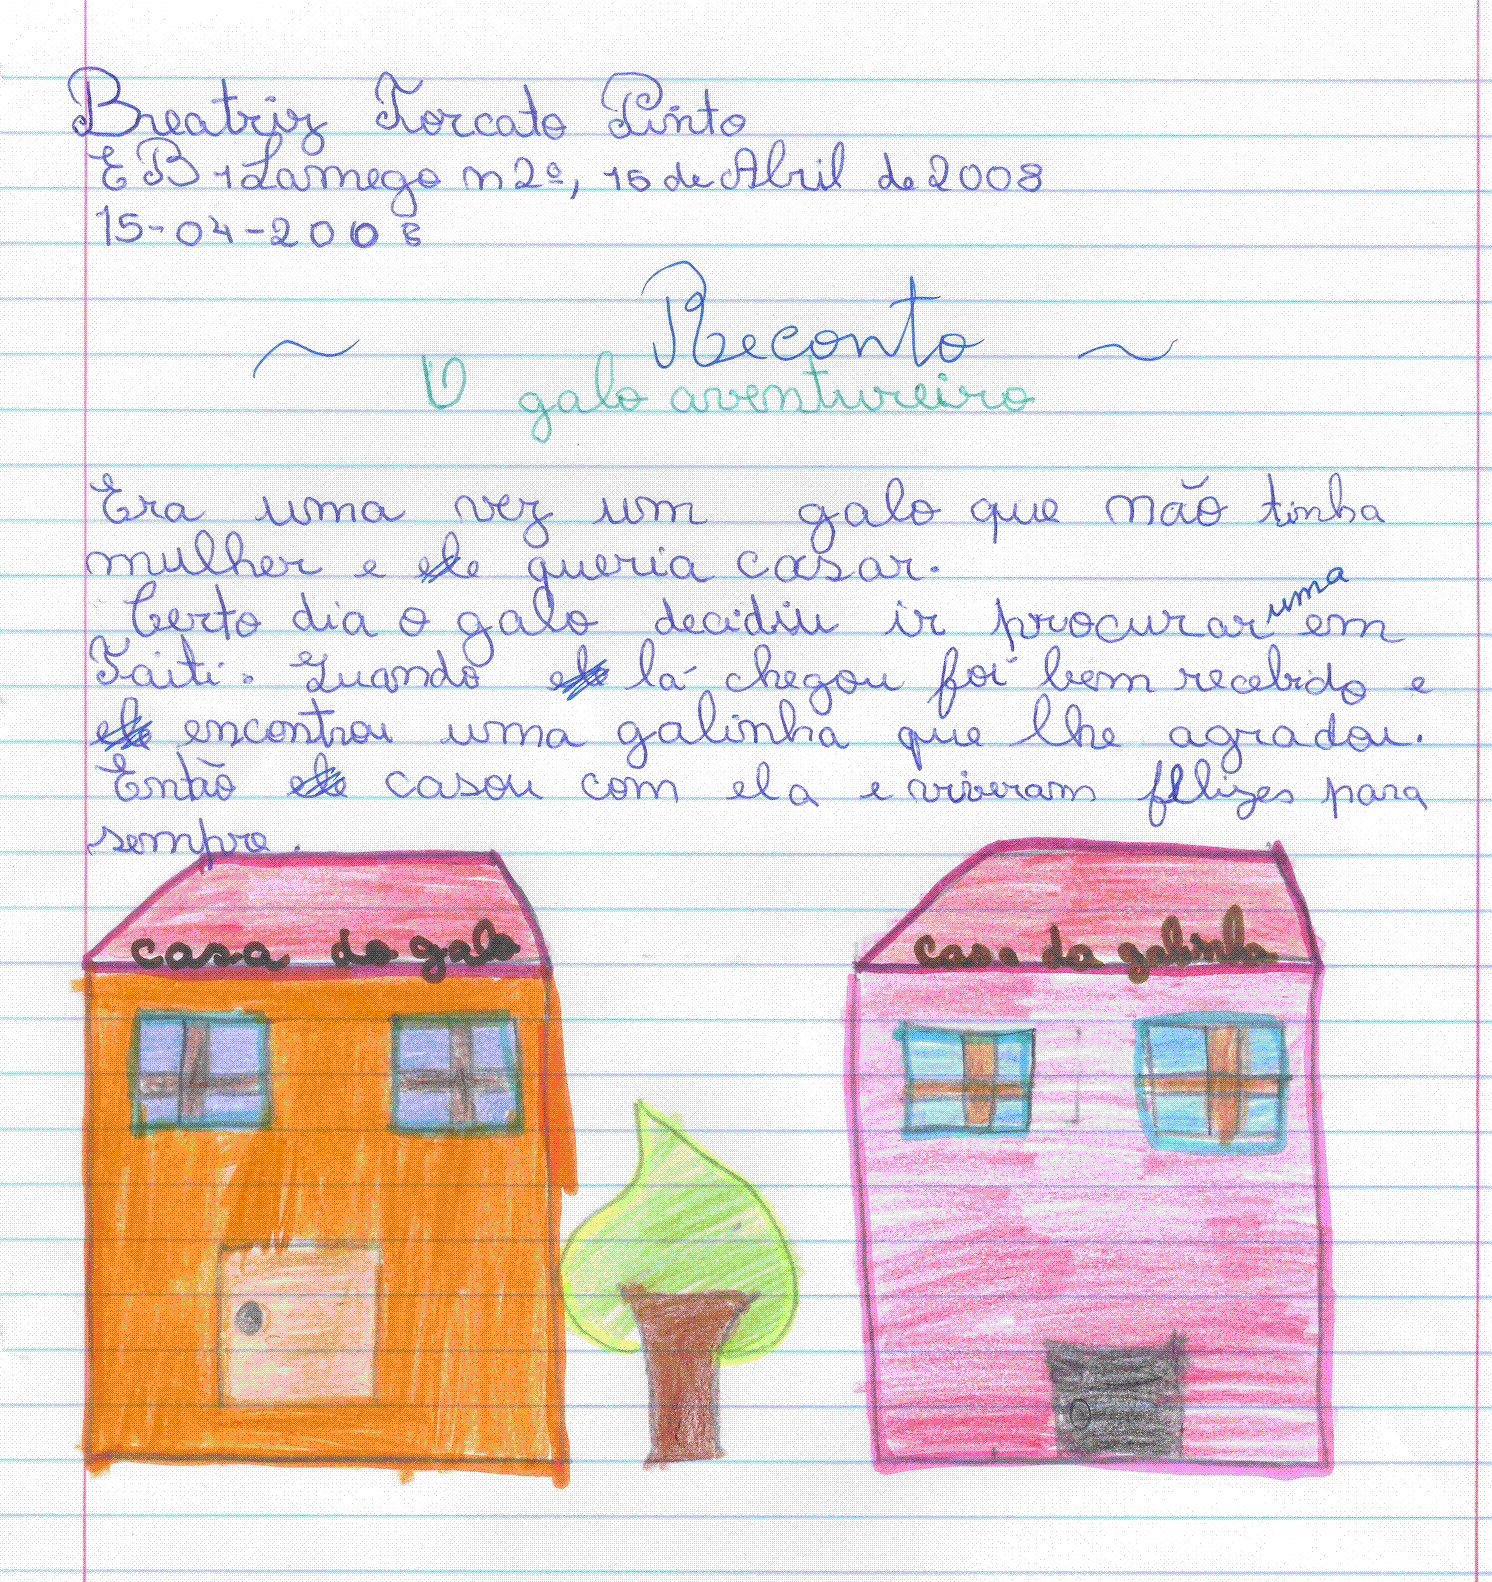 Beatriz Torcato Pinto
EB1 Lamego n2º, 15 de Abril de 2008
15-04-2008
~ Reconto ~
O galo aventureiro
Era uma vez um galo que não tinha
mulher e ele queria casar.
Certo dia o galo decidiu ir procurar uma em
Taiti. Quando ele lá chegou foi bem recebido e
ele encontrou uma galinha que lhe agradou.
Então ele casou com ela e viveram felizes para
sempre.
casa do galo
casa da galinha